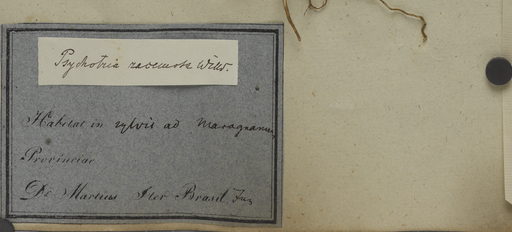 Psychotria racemosa Willd.
Habitat in sylvis ad Maragnanum
Provinciae
Dr. Martius Iter Brasil.